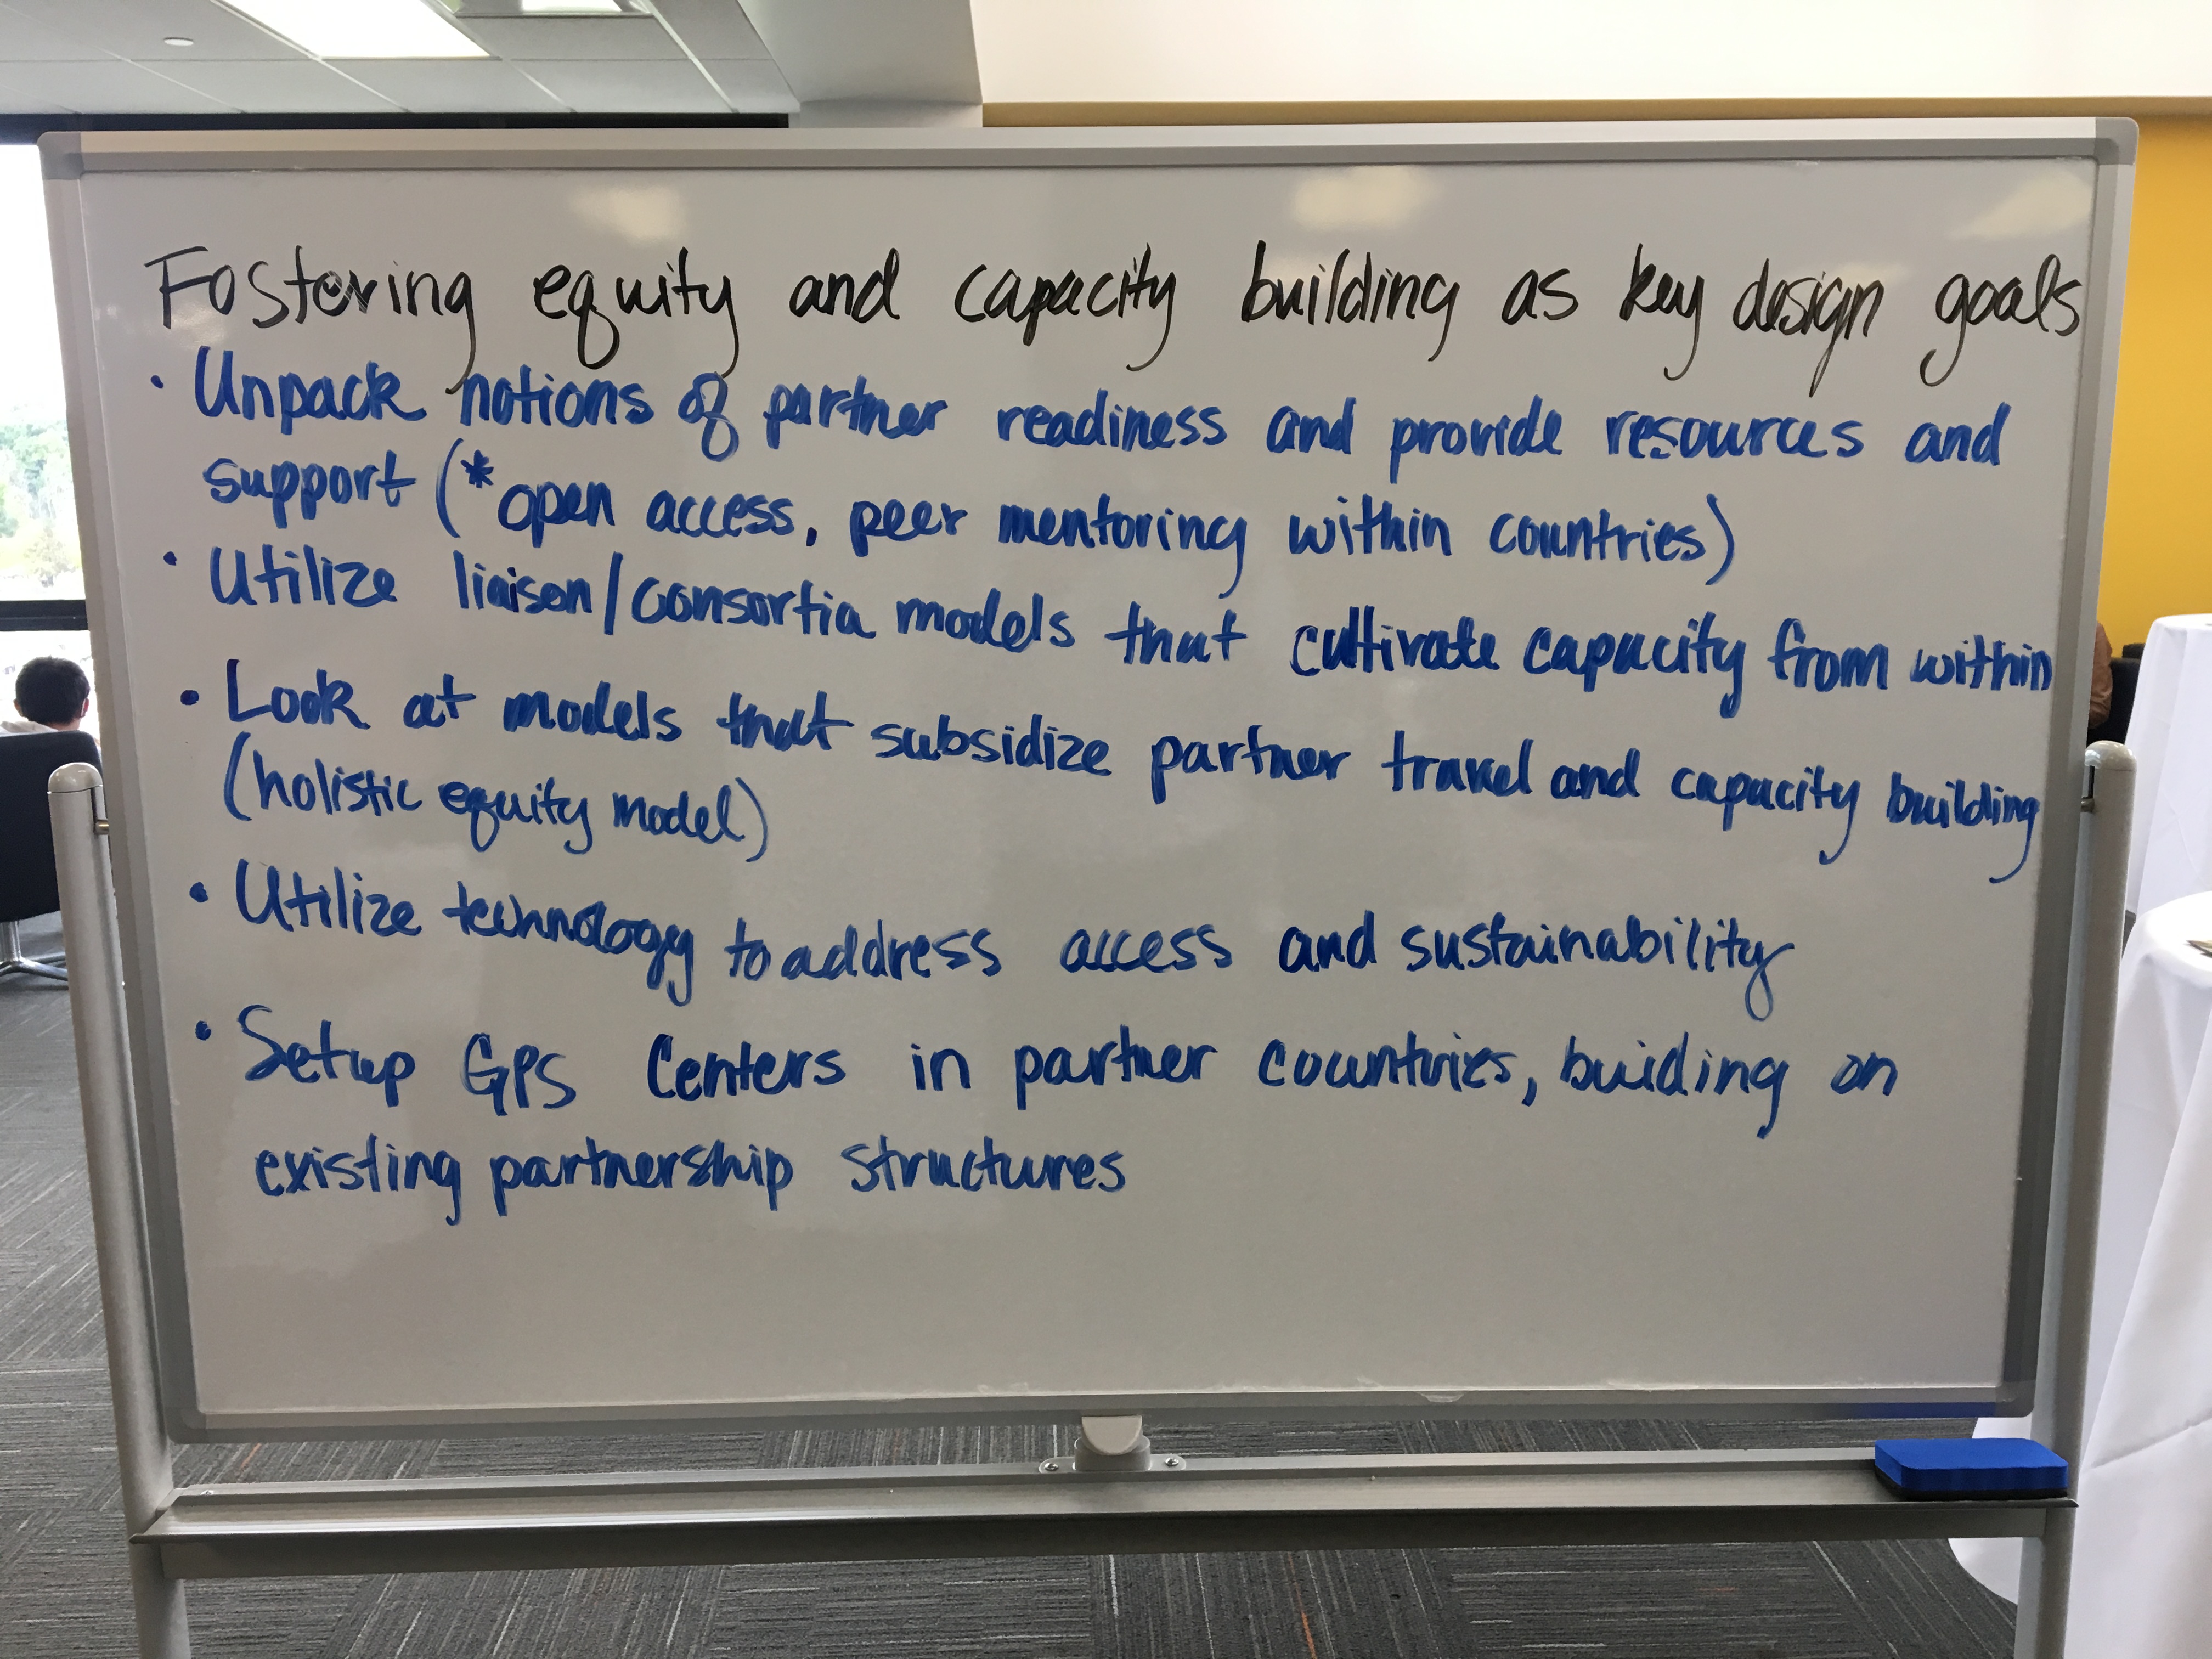 Fostering equity and capacity building as key design goals
• Unpack notions of partner readiness and provide resources and
support (*open access, peer mentoring within countries)
• Utilize liaison/consortia models that cultivate capacity from within
• Look at models that subsidize partner travel and capacity building
(holistic equity model)
• Utilize technology to address access and sustainability
• Setup GPS Centers in partner countries, buiding on
existing partnership structures